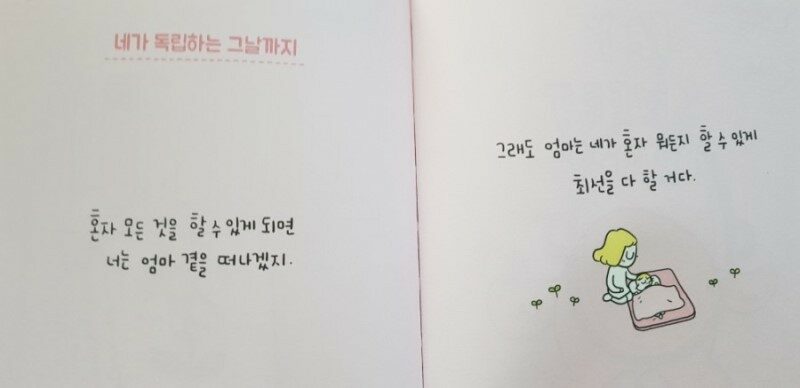 네가 독립하는 그날까지
혼자 모든 것을 할 수 있게 되면
너는 엄마 곁을 떠나겠지.
그래도 엄마는 네가 혼자 뭐든지 할 수 있게
최선을 다 할 거다.